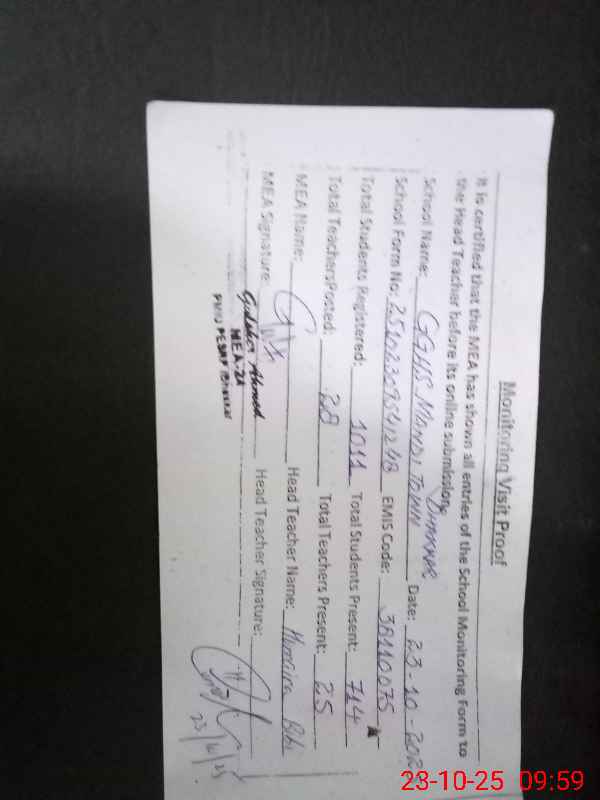 Monitoring Visit Proof
It is certified that the MEA has shown all entries of the School Monitoring Form to
the Head Teacher before its online submission.
School Name: GGHS MANDI TOWN Date: 23-10-202
School Form No: EMIS Code: 38110075
Total Students Registered: 1011 Total Students Present: 714
Total TeachersPosted: 28 Total Teachers Present: 25
MEA Name: Head Teacher Name: Humaira Bibi
MEA Signature: Head Teacher Signature:
Ahmed
MEA-24
23-10-25 09:59